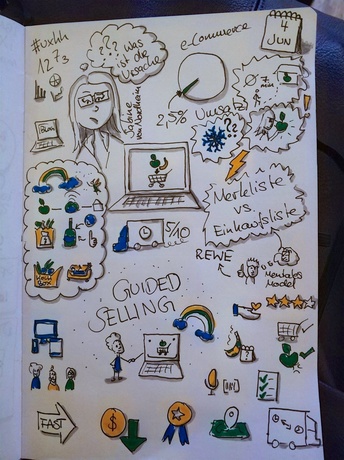 #uxhh
127₃
???
was
ist die
Ursache
e-Commerce
4
JUN
2,5% Umsatz
??
Merkliste
vs.
Einkaufsliste
5/10
REWE
mentales
Modell
GUIDED
SELLING
FAST
$